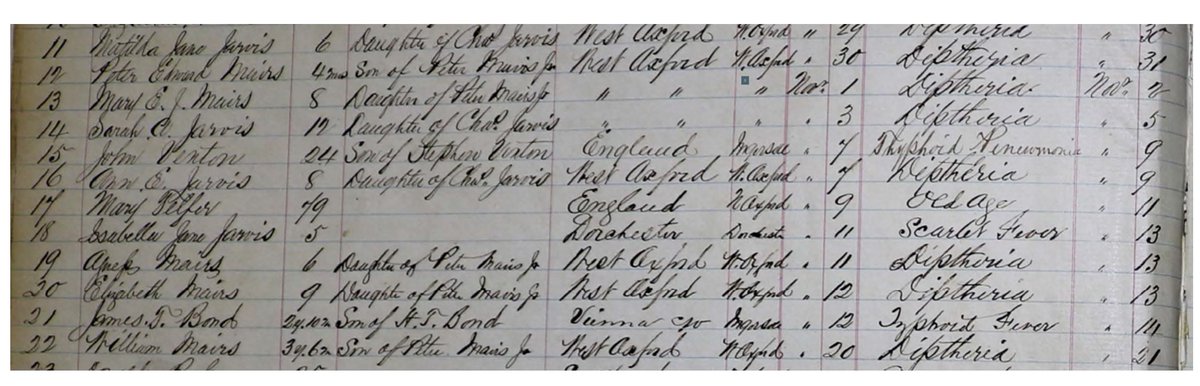 11 Matilda Jane Jarvis 6 Daughter of Chaˢ. Jarvis West Oxford W. Oxfd " 29 Diptheria " 30
12 Peter Edward Mairs 4 mos Son of Peter Mairs Jr West Oxford W. Oxfd " 30 Diptheria " 31
13 Mary E. J. Mairs 8 Daughter of Peter Mairs Jr " " " Nov. 1 Diptheria Nov. 2
14 Sarah A. Jarvis 12 Daughter of Chaˢ. Jarvis " " " " 3 Diptheria " 5
15 John Venton 24 Son of Stephen Venton England " 7 Thyphoid Pineumonia " 9
16 Ann E. Jarvis 8 Daughter of Chaˢ. Jarvis West Oxford W. Oxfd " 7 Diptheria " 9
17 Mary Telfer 79 England " 9 Old Age " 11
18 Isabella Jane Jarvis 5 Dorchester Dorchester " 11 Scarlet Fever " 13
19 Mairs 6 Daughter of Peter Mairs Jr West Oxford W. Oxfd " 11 Diptheria " 13
20 Elizabeth Mairs 9 Daughter of Peter Mairs Jr West Oxford W. Oxfd " 12 Diptheria " 13
21 James. T. Bond 2y. 10m Son of H. T. Bond Vienna " 12 Typhoid Fever " 14
22 William Mairs 3y. 6m Son of Peter Mairs Jr West Oxford W. Oxfd " 20 Diptheria " 21
23